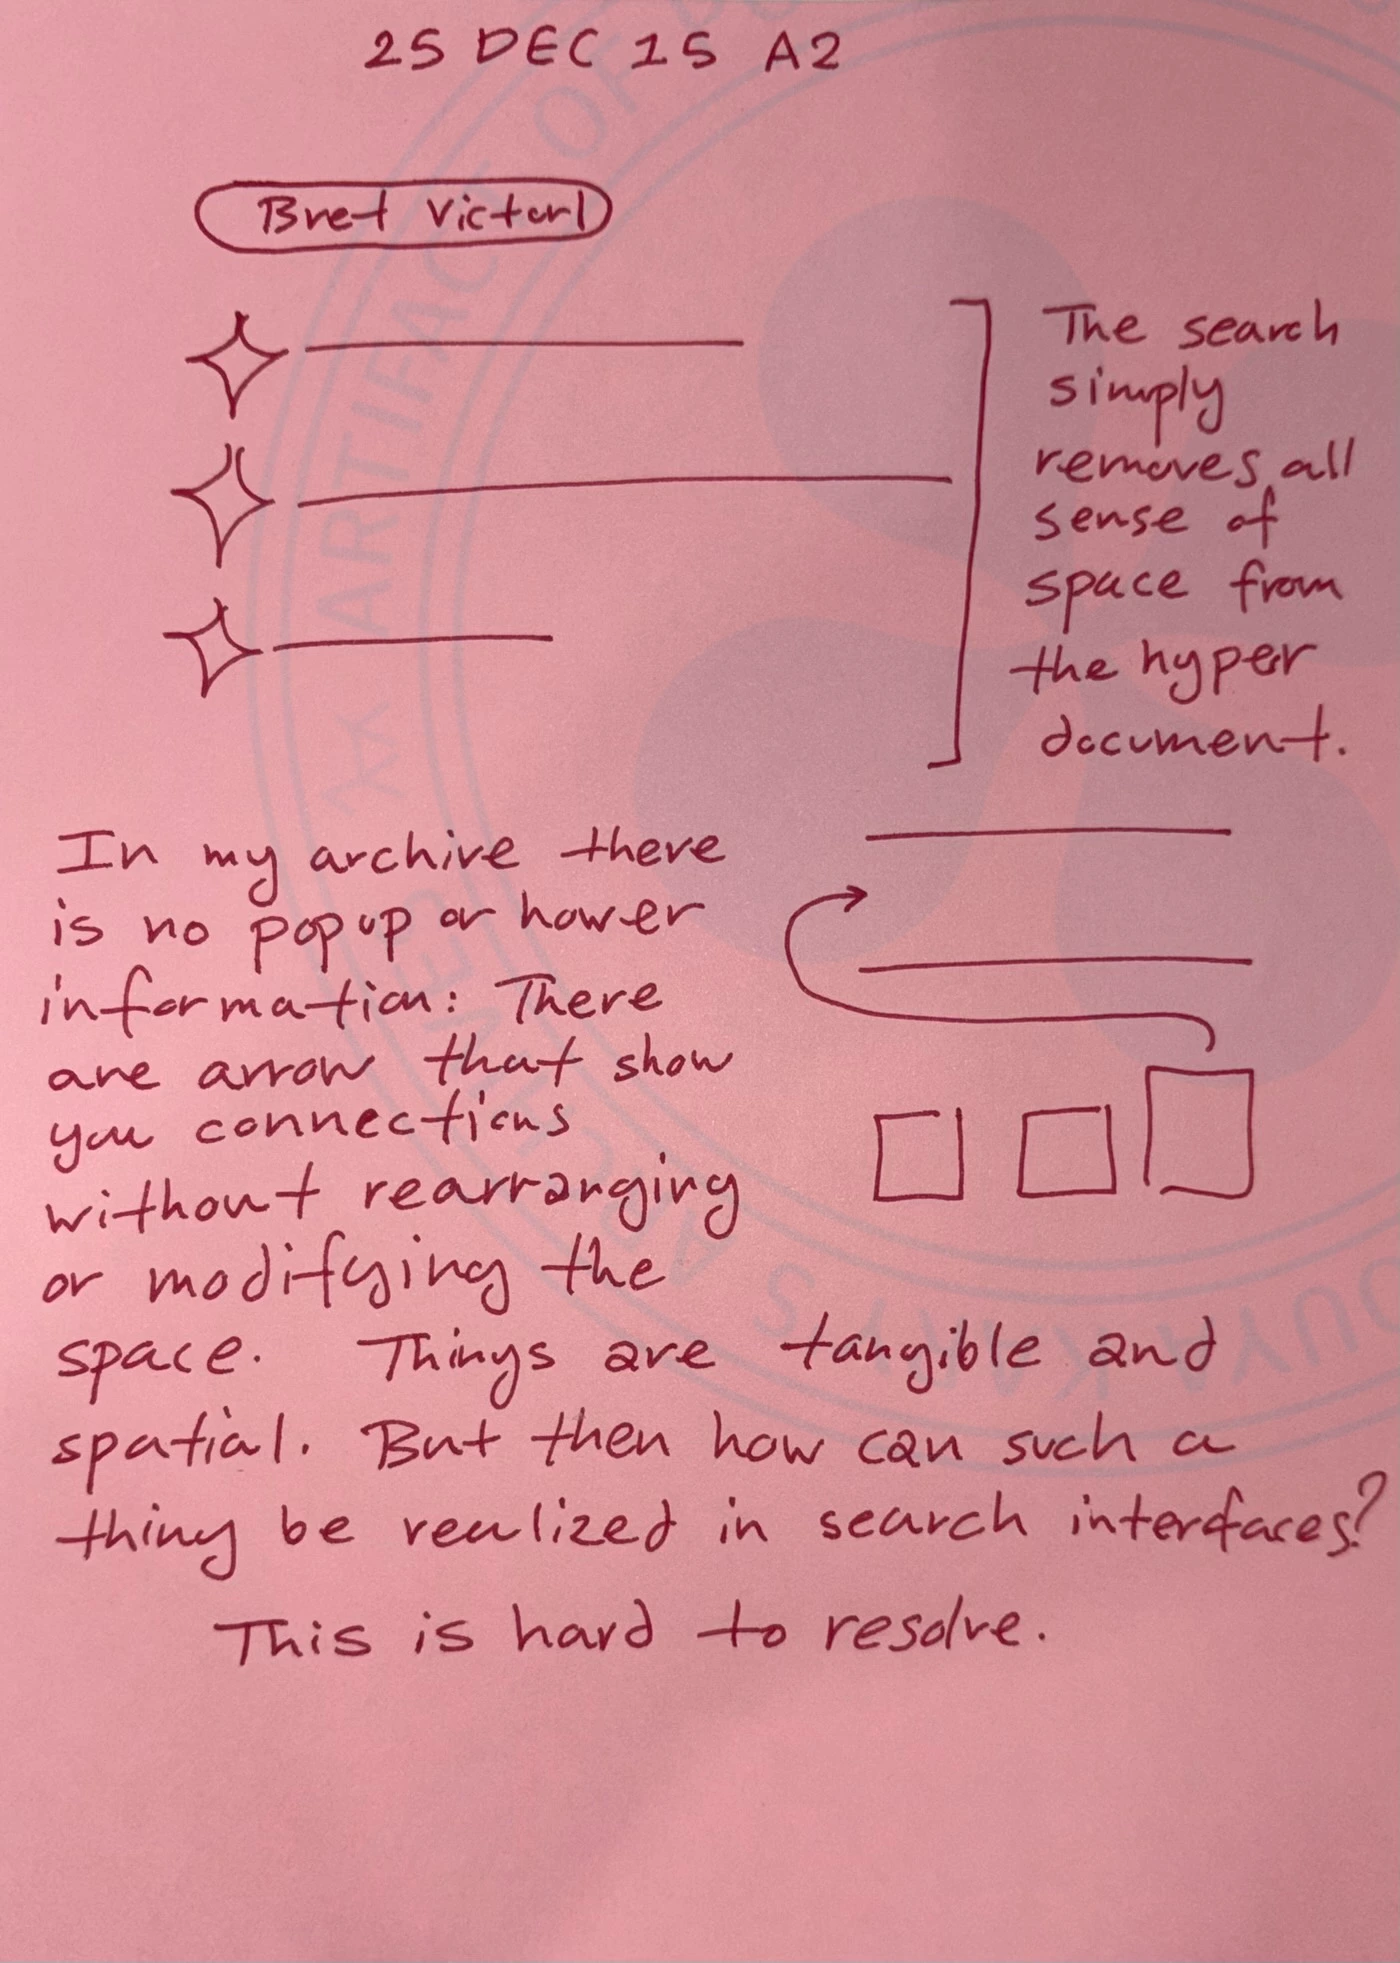 25 DEC 15 A2
Bret Victor
The search
simply
removes all
sense of
space from
the hyper
document.
In my archive there
is no popup or hower
information: There
are arrow that show
you connections
without rearranging
or modifying the
space. Things are tangible and
spatial. But then how can such a
thing be realized in search interfaces?
This is hard to resolve.
ARTIFACT OF
ARCHIVES